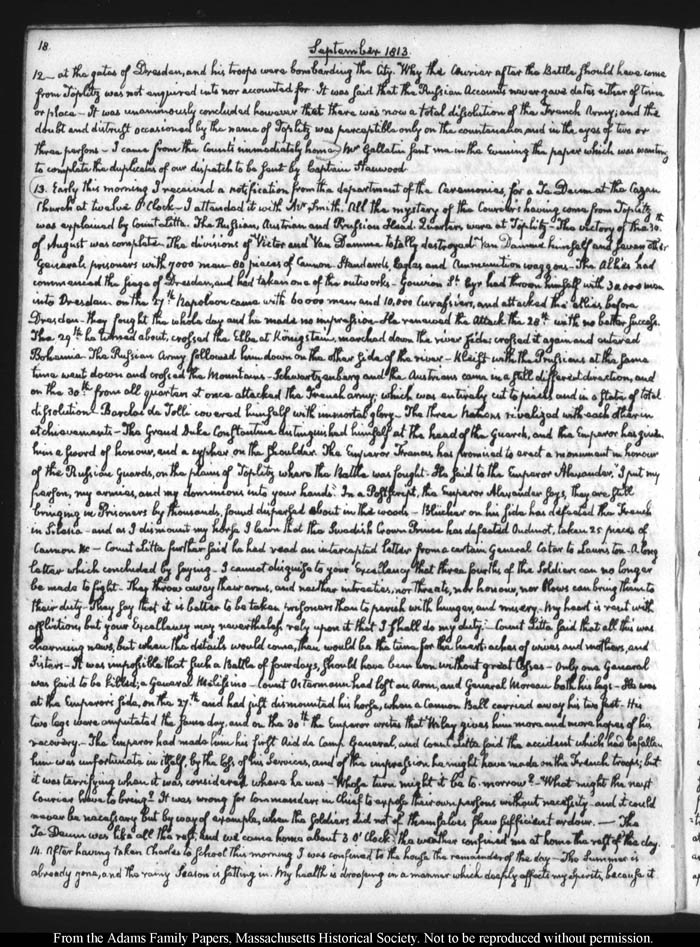 18.
September 1813.
12 at the gates of Dresden, and his troops were bombarding the City. Why the Courier after the Battle should have come
from Toplitz was not enquired into nor accounted for. It was said that the Russian Accounts never gave dates either of time
or place - It was unanimously concluded however that there was now a total dissolution of the French Army; and the
doubt and distrust occasioned by the name of Toplitz was perceptible only on the countenance, and in the eyes of two or
three persons - I came from the Count's immediately home. Mr Gallatin sent me in the Evening the paper which was wanting
to complete the duplicates of our dispatch to be sent by Captain Harwood
13. Early this morning I received a notification from the department of the Ceremonies, for a Te Deum at the Cazan
Church at twelve O'Clock - I attended it with Mr Smith. All the mystery of the Courier's having come from Toplitz
was explained by Count Litta. The Russian, Austrian and Prussian Head Quarters were at Toplitz - The victory of the 30th
of August was complete. The divisions of Victor and Van Damme totally destroyed. Van Damme himself and seven other
Generals prisoners with 7000 men 80 pieces of Cannon. Standards, Eagles and Ammunition waggons - The Allies had
commenced the siege of Dresden, and had taken one of the outworks - Gouvion St. Cyr had thrown himself with 30,000 men
into Dresden. on the 27th Napoleon came with 60000 men and 10,000 Cuirassiers, and attacked the allies before
Dresden. they fought the whole day and he made no impression. He renewed the Attack the 28th with no better success.
The 29th he turned about, crossed the Elbe at Königstein, marched down the river side; crossed it again and entered
Bohemia. The Russian Army followed him down on the other side of the river - Kleist with the Prussians at the same
time went down and crossed the Mountains - Schwartzenberg and the Austrians came in a still different direction, and
on the 30th from all quarters at once attacked the French army; which was entirely cut to pieces and in a state of total
dissolution - Barclay de Tolli covered himself with immortal glory - The three Nations rivalized with each other in
atchievements - The Grand Duke Constantine distinguished himself at the head of the Guards, and the Emperor has given
him a sword of honour, and a cypher on the shoulder. The Emperor Francis has promised to erect a monument in honour
of the Russian Guards, on the plain of Toplitz where the Battle was fought. He said to the Emperor Alexander, "I put my
person, my armies, and my dominions into your hands." In a Postscript, the Emperor Alexander says, they are still
bringing in Prisoners by thousands, found dispersed about in the woods - Blücher on his side has defeated the French
in Silesia - and as I dismount my horse I learn that the Swedish Crown Prince has defeated Oudinot, taken 25 pieces of
Cannon &c - Count Litta further said he had read an intercepted letter from a certain General to Lauriston. A long
letter which concluded by saying - I cannot disguise to your Excellency that three fourths of the Soldiers can no longer
be made to fight - They throw away their arms, and neither intreaties, nor threats, nor honour, nor blows can bring them to
their duty. They say that it is better to be taken prisoners than to perish with hunger, and misery. My heart is rent with
affliction, but your Excellency may nevertheless rely upon it that I shall do my duty. - Count Litta said that all this was
charming news, but when the details would come, then would be the time for the heart-aches of wives and mothers, and
Sisters - It was impossible that such a battle of four days, should have been won without great losses - Only one General
was said to be killed; a General Melissino - Count Ostermann had lost an Arm, and General Moreau both his legs - He was
at the Emperor's side, on the 27th and had just dismounted his horse, when a Cannon Ball carried away his two feet. His
two legs were amputated the same day, and on the 30th the Emperor writes that Wiley gives him more and more hopes of his
recovery - The Emperor had made him his first Aid de Camp General, and Count Litta said the accident which had befallen
him was unfortunate in itself, by the loss of his services, and of the impression he might have made on the French troops; but
it was terrifying when it was considered where he was - Whose turn might it be to-morrow? - What might the next
Courier have to bring? It was wrong for Commanders in Chief to expose their own persons without necessity - and it could
never be necessary but by way of example, when the soldiers did not of themselves shew sufficient ardour. — The
Te Deum was like all the rest, and we came home about 3 O'Clock. the weather confined me at home the rest of the day.
14. After having taken Charles to School this morning I was confined to the house the remainder of the day - The Summer is
already gone, and the rainy Season is setting in. My health is drooping in a manner which deeply affects my Spirits, because it
From the Adams Family Papers, Massachusetts Historical Society. Not to be reproduced without permission.